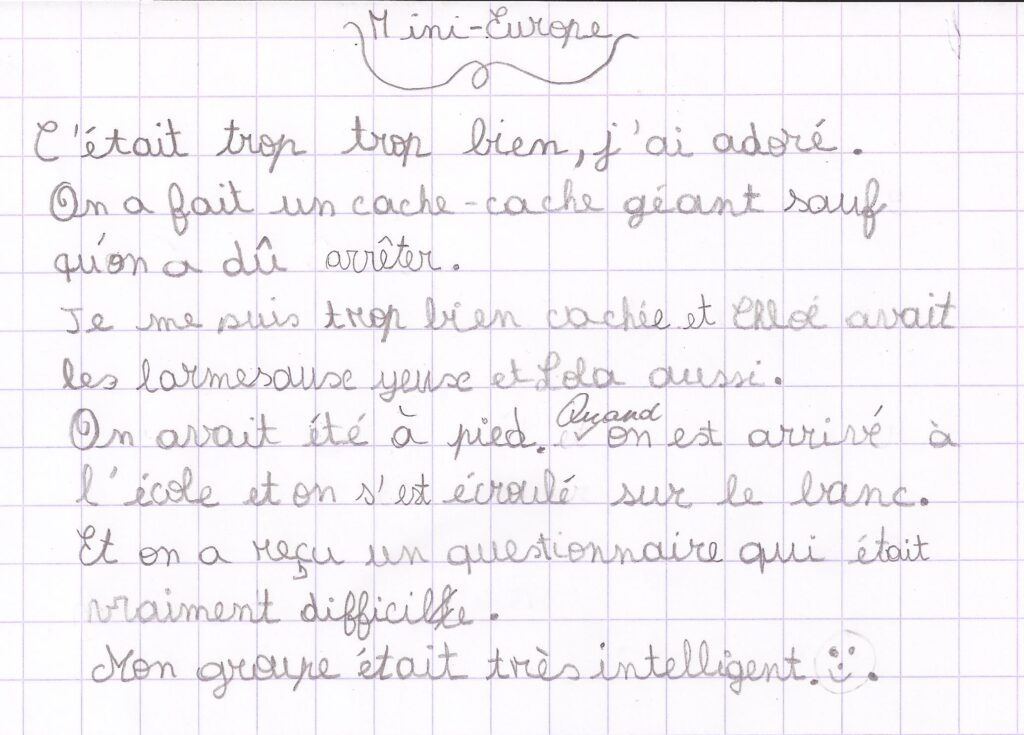 Mini-Europe
C'était trop trop bien, j'ai adoré.
On a fait un cache-cache géant sauf
qu'on a dû arrêter.
Je me suis trop bien cachée et Chloé avait
les larmes aux yeux et Lola aussi.
On avait été à pied. Quand on est arrivé à
l'école et on s'est écroulé sur le banc.
Et on a reçu un questionnaire qui était
vraiment difficile.
Mon groupe était très intelligent.